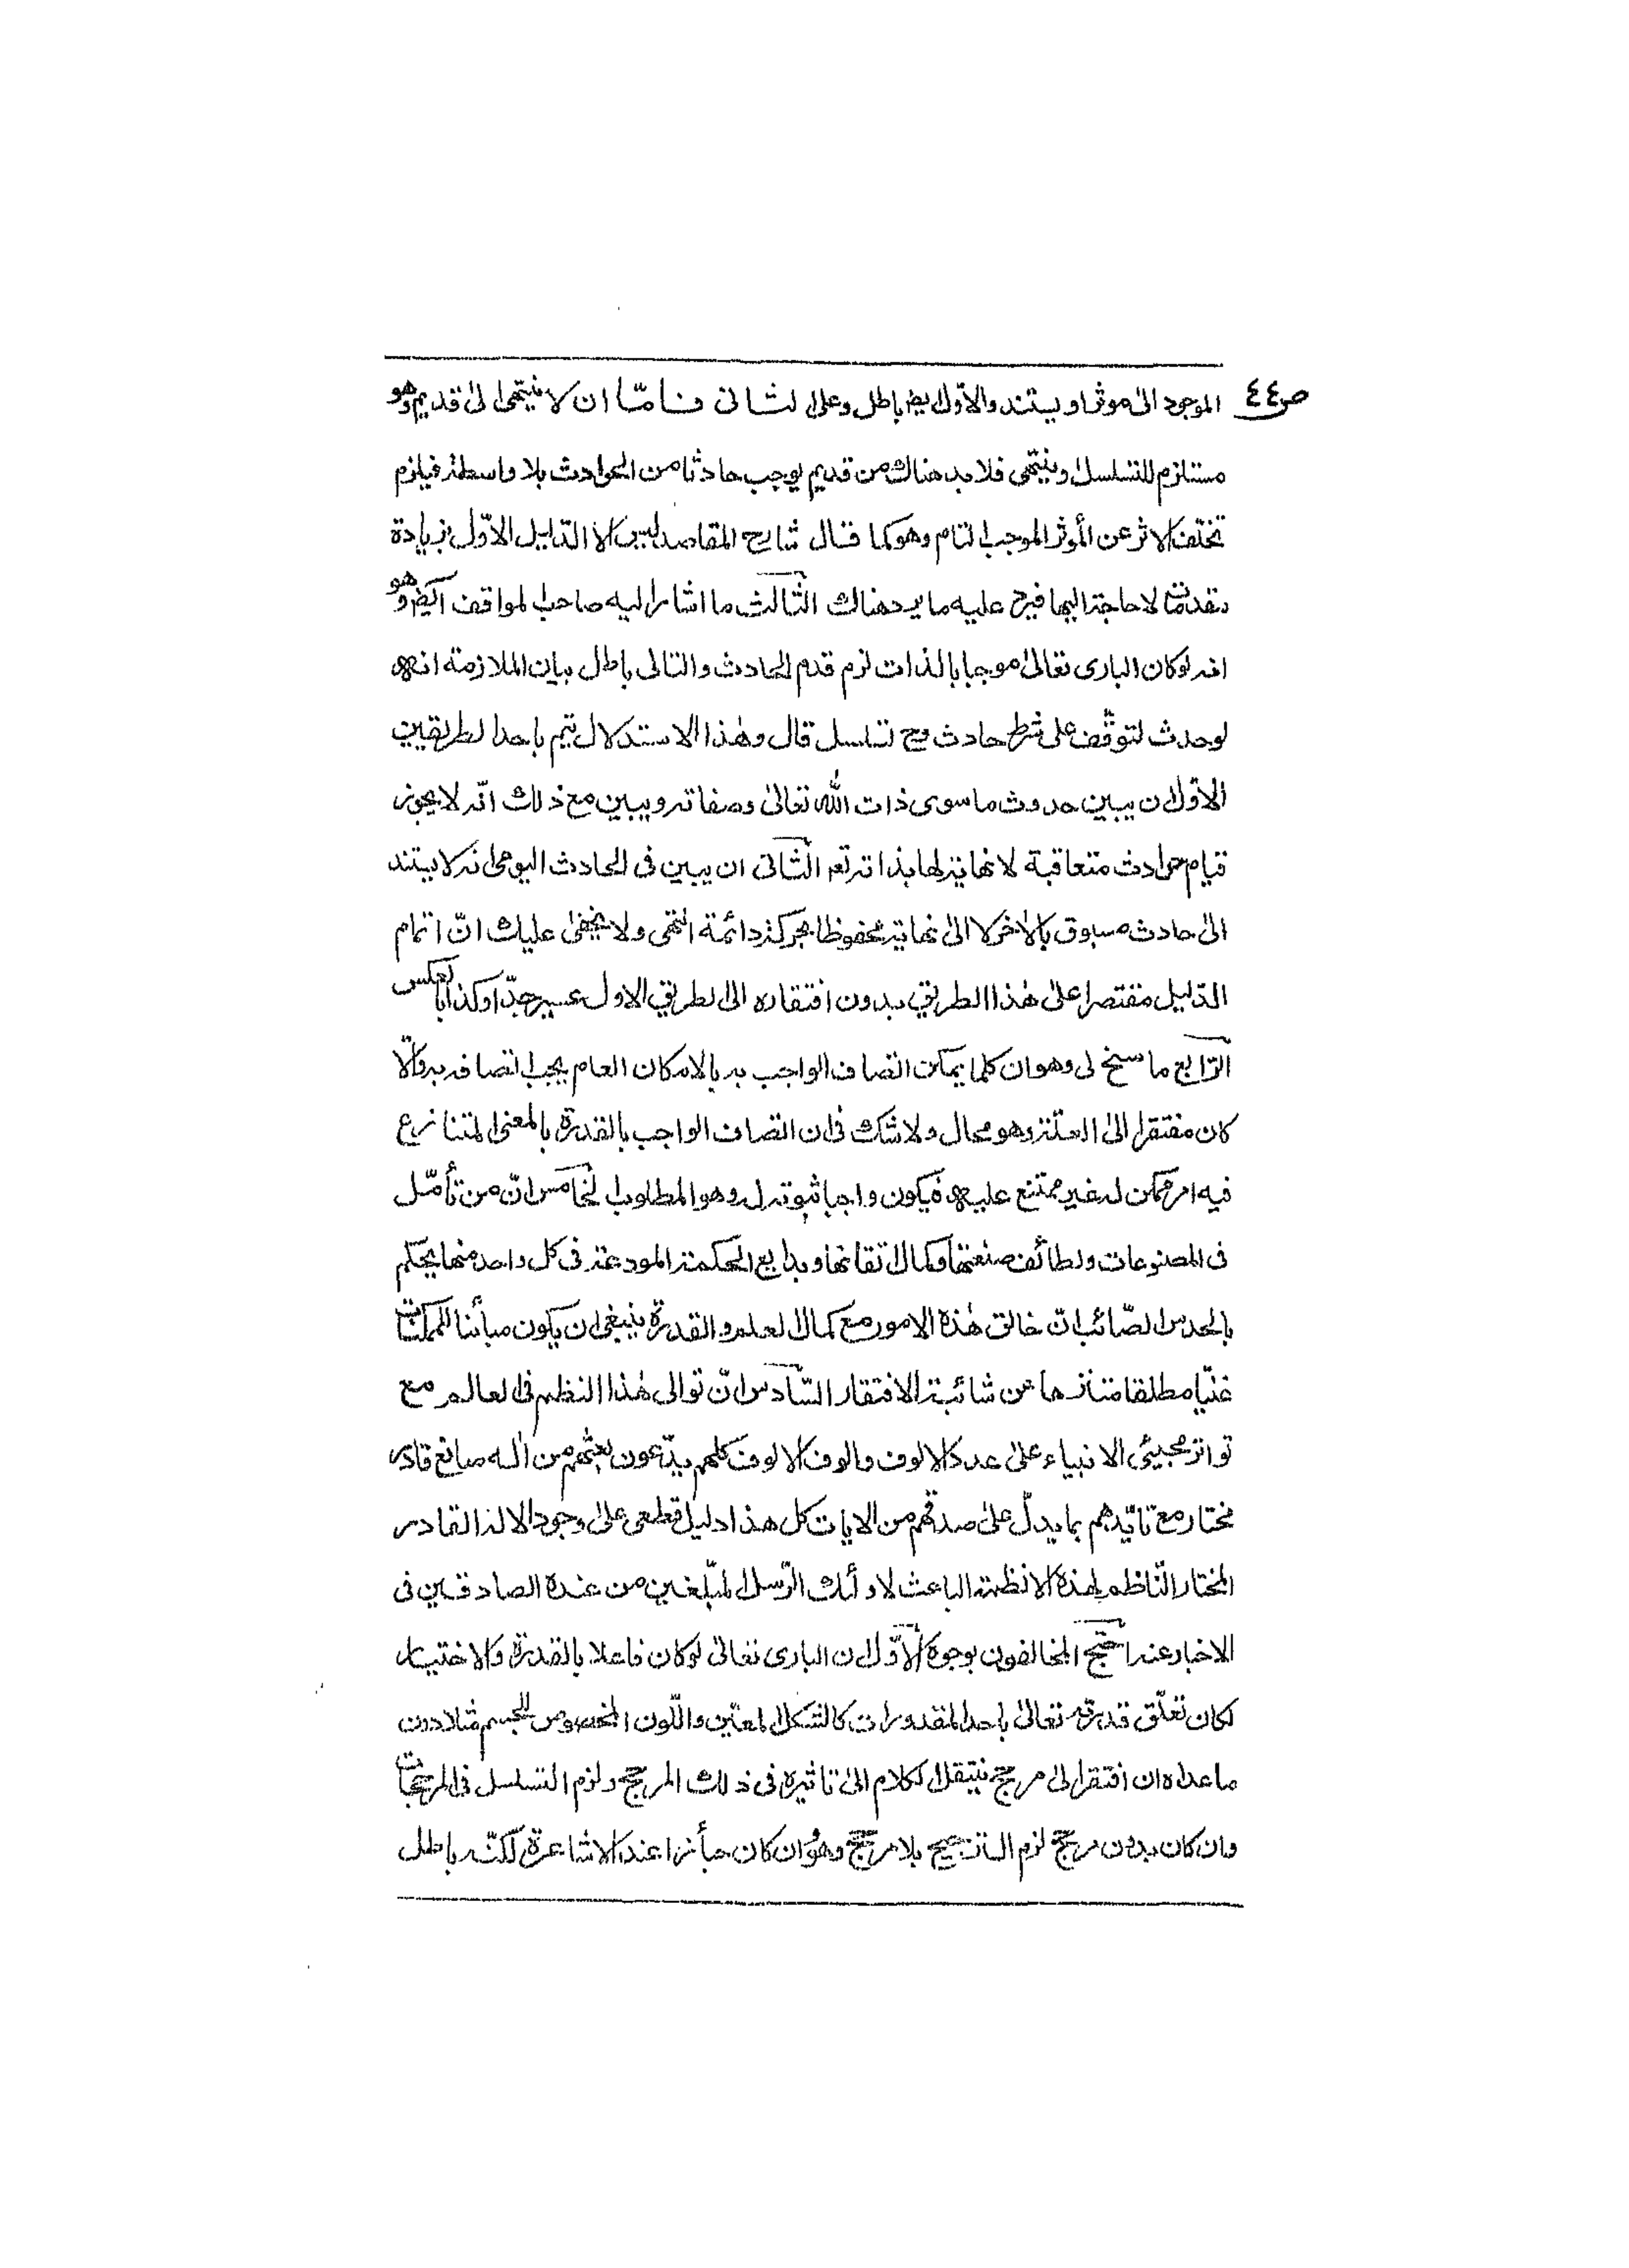 ص٤٤ الموجود الى موثر او يستند والاوّل ايضا باطل وعلى الثانى فامّا ان لا ينتهى الى قديم وهو
مستلزم للتسلسل وينتهى فلابد هناك من قديم يوجب حادثا من الحوادث بلا واسطة فيلزم
تخلّف الاثر عن المؤثر الموجب التام وهو كما قال شارح المقاصد ليس الا الدّليل الاوّل بزيادة
مقدمات لا حاجة اليها فيرد عليه ما يرد هناك الثّالث ما اشار اليه صاحب المواقف ايضا وهو
انه لو كان البارى تعالىٰ موجبا بالذات لزم قدم الحادث والتالى باطل بيان الملازمة انه
لو حدث لتوقّف على شرط حادث وح تسلسل قال وهٰذا الاستدلال يتم باحد الطريقين
الاوّل ان يبين حدوث ما سوى ذات اللّٰه تعالىٰ وصفاته ويبين مع ذلك انّه لا يجوز
قيام حوادث متعاقبة لا نهاية لها بذاته تع الثّانى ان يبين فى الحادث اليومى انه لا يستند
الىٰ حادث مسبوق بالاٰخر لا الىٰ نهاية محفوظا بحركة دائمة انتهى ولا يخفىٰ عليك انّ اتمام
الدّليل مقتصرا علىٰ هٰذا الطريق بدون افتقاره الى الطريق الاول عسير جدّا وكذا بالعكس
الرّابع ما سنح لى وهو ان كلما يمكن اتصاف الواجب به بالامكان العام يجب اتصافه به والّا
كان مفتقرا الىٰ العلّة وهو محال ولا شك فى ان اتصاف الواجب بالقدرة بالمعنى المتنازع
فيه امر ممكن له غير ممتنع عليه فيكون واجبا ثبوته له وهو المطلوب الخامس انّ من تأمّل
فى المصنوعات ولطائف صنعتها وكمال اتقانها وبدايع الحكمة المودعة فى كل واحد منها يحكم
بالحدس الصّائب انّ خالق هٰذه الامور مع كمال العلم والقدرة ينبغى ان يكون مبائنا للممكنات
غنيّا مطلقا متنزها عن شائبة الافتقار السّادس انّ توالى هٰذا النظم فى العالم مع
تواتر مجيئى الانبياء علىٰ عدد الالوف والوف الالوف كلهم يدّعون بعثهم من اٰله صانع قادر
مختار مع تائيّدهم بما يدلّ علىٰ صدقهم من الايات كل هذا دليل قطعى علىٰ وجود الاله القادر
المختار النّاظم لهذه الانظمة الباعث لاولٰئك الرّسل المبلّغين من عنده الصادقين فى
الاخبار عنه احتّج المخالفون بوجوه الاوّل ان البارى تعالىٰ لو كان فاعلا بالقدرة والاختيار
لكان تعلّق قدرته تعالىٰ باحد المقدورات كالشكل المعيّن واللّون المخصوص للجسم مثلا دون
ما عداه ان افتقر الىٰ مرجح ننتقل الكلام الىٰ تاثيره فى ذلك المرجح ولزم التسلسل فى المرجحات
وان كان بدون مرجّح لزم الترجيح بلا مرجّح وهو ان كان جائزا عند الاشاعرة لكنّه باطل